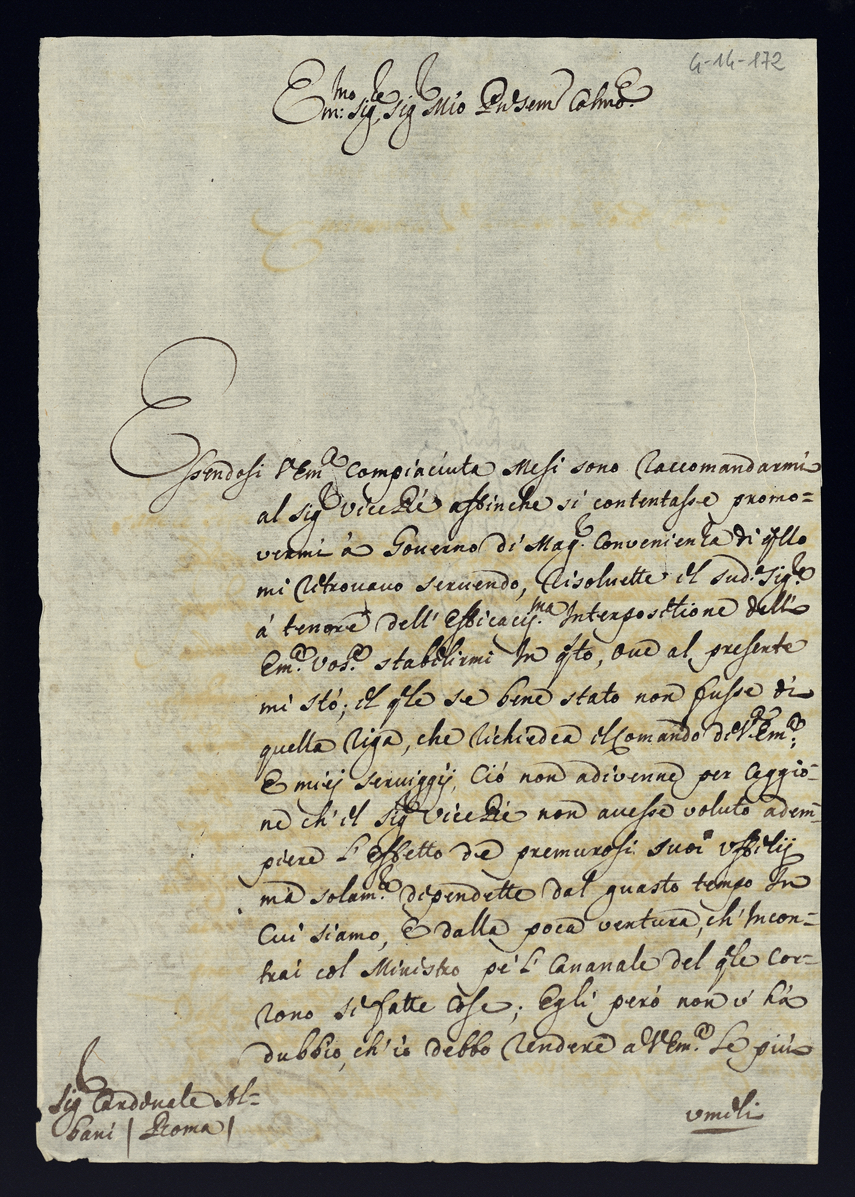 4-14-172
Em:mo Sig.re Sig.r Mio Pñ Sem Colmo.
Essendosi V Em.a Compiaciuta Mesi sono Raccomandarmi
al Sig.r Vice Ré affinche si contentasse promo=
vermi à Governo di Mag.r Convenienza di q̃llo
mi ritrovavo servendo, risolvette il sud.o Sig.re
à tenore dell' Efficaciss.ma Interpositione dell'
Em.a Vos.a stabilirmi In q̃to, ove al presente
mi stò; il q̃le se bene stato non fusse di
quella riga, che richiedea il Comando di V. Em.a,
E miei serviggij, Ciò non adivenne per Caggio=
ne ch' il Sig.r Vice Ré non avesse voluto adem=
piere l' effetto de premurosi suoi Uffitij
mà solam.te dipendette dal guasto tempo In
Cui siamo, E dalla poca ventura, ch' Incon=
trai col Ministro pe 'l Cananale del q̃le Cor=
rono sì fatte Cose; Egli però non v' hà
dubbio, ch' io debbo rendere a V Em.a Le più
umili
Sig.r Cardinale Al=
bani | Roma |